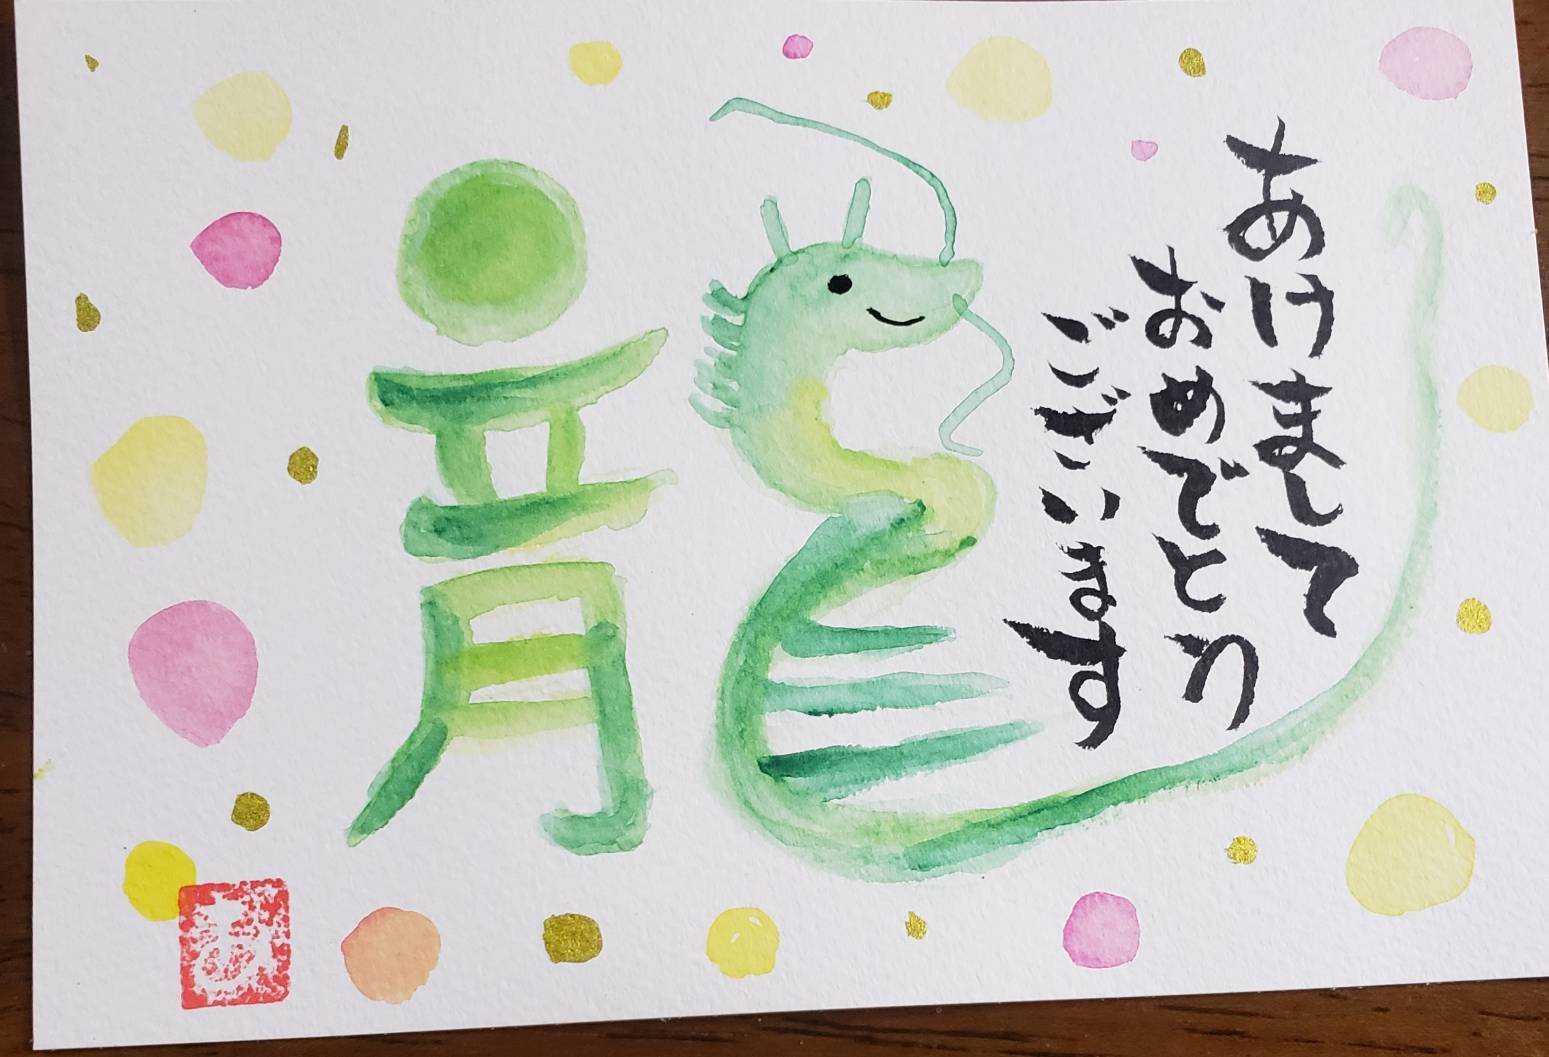 あけまして
おめでとう
ございます
龍
あ